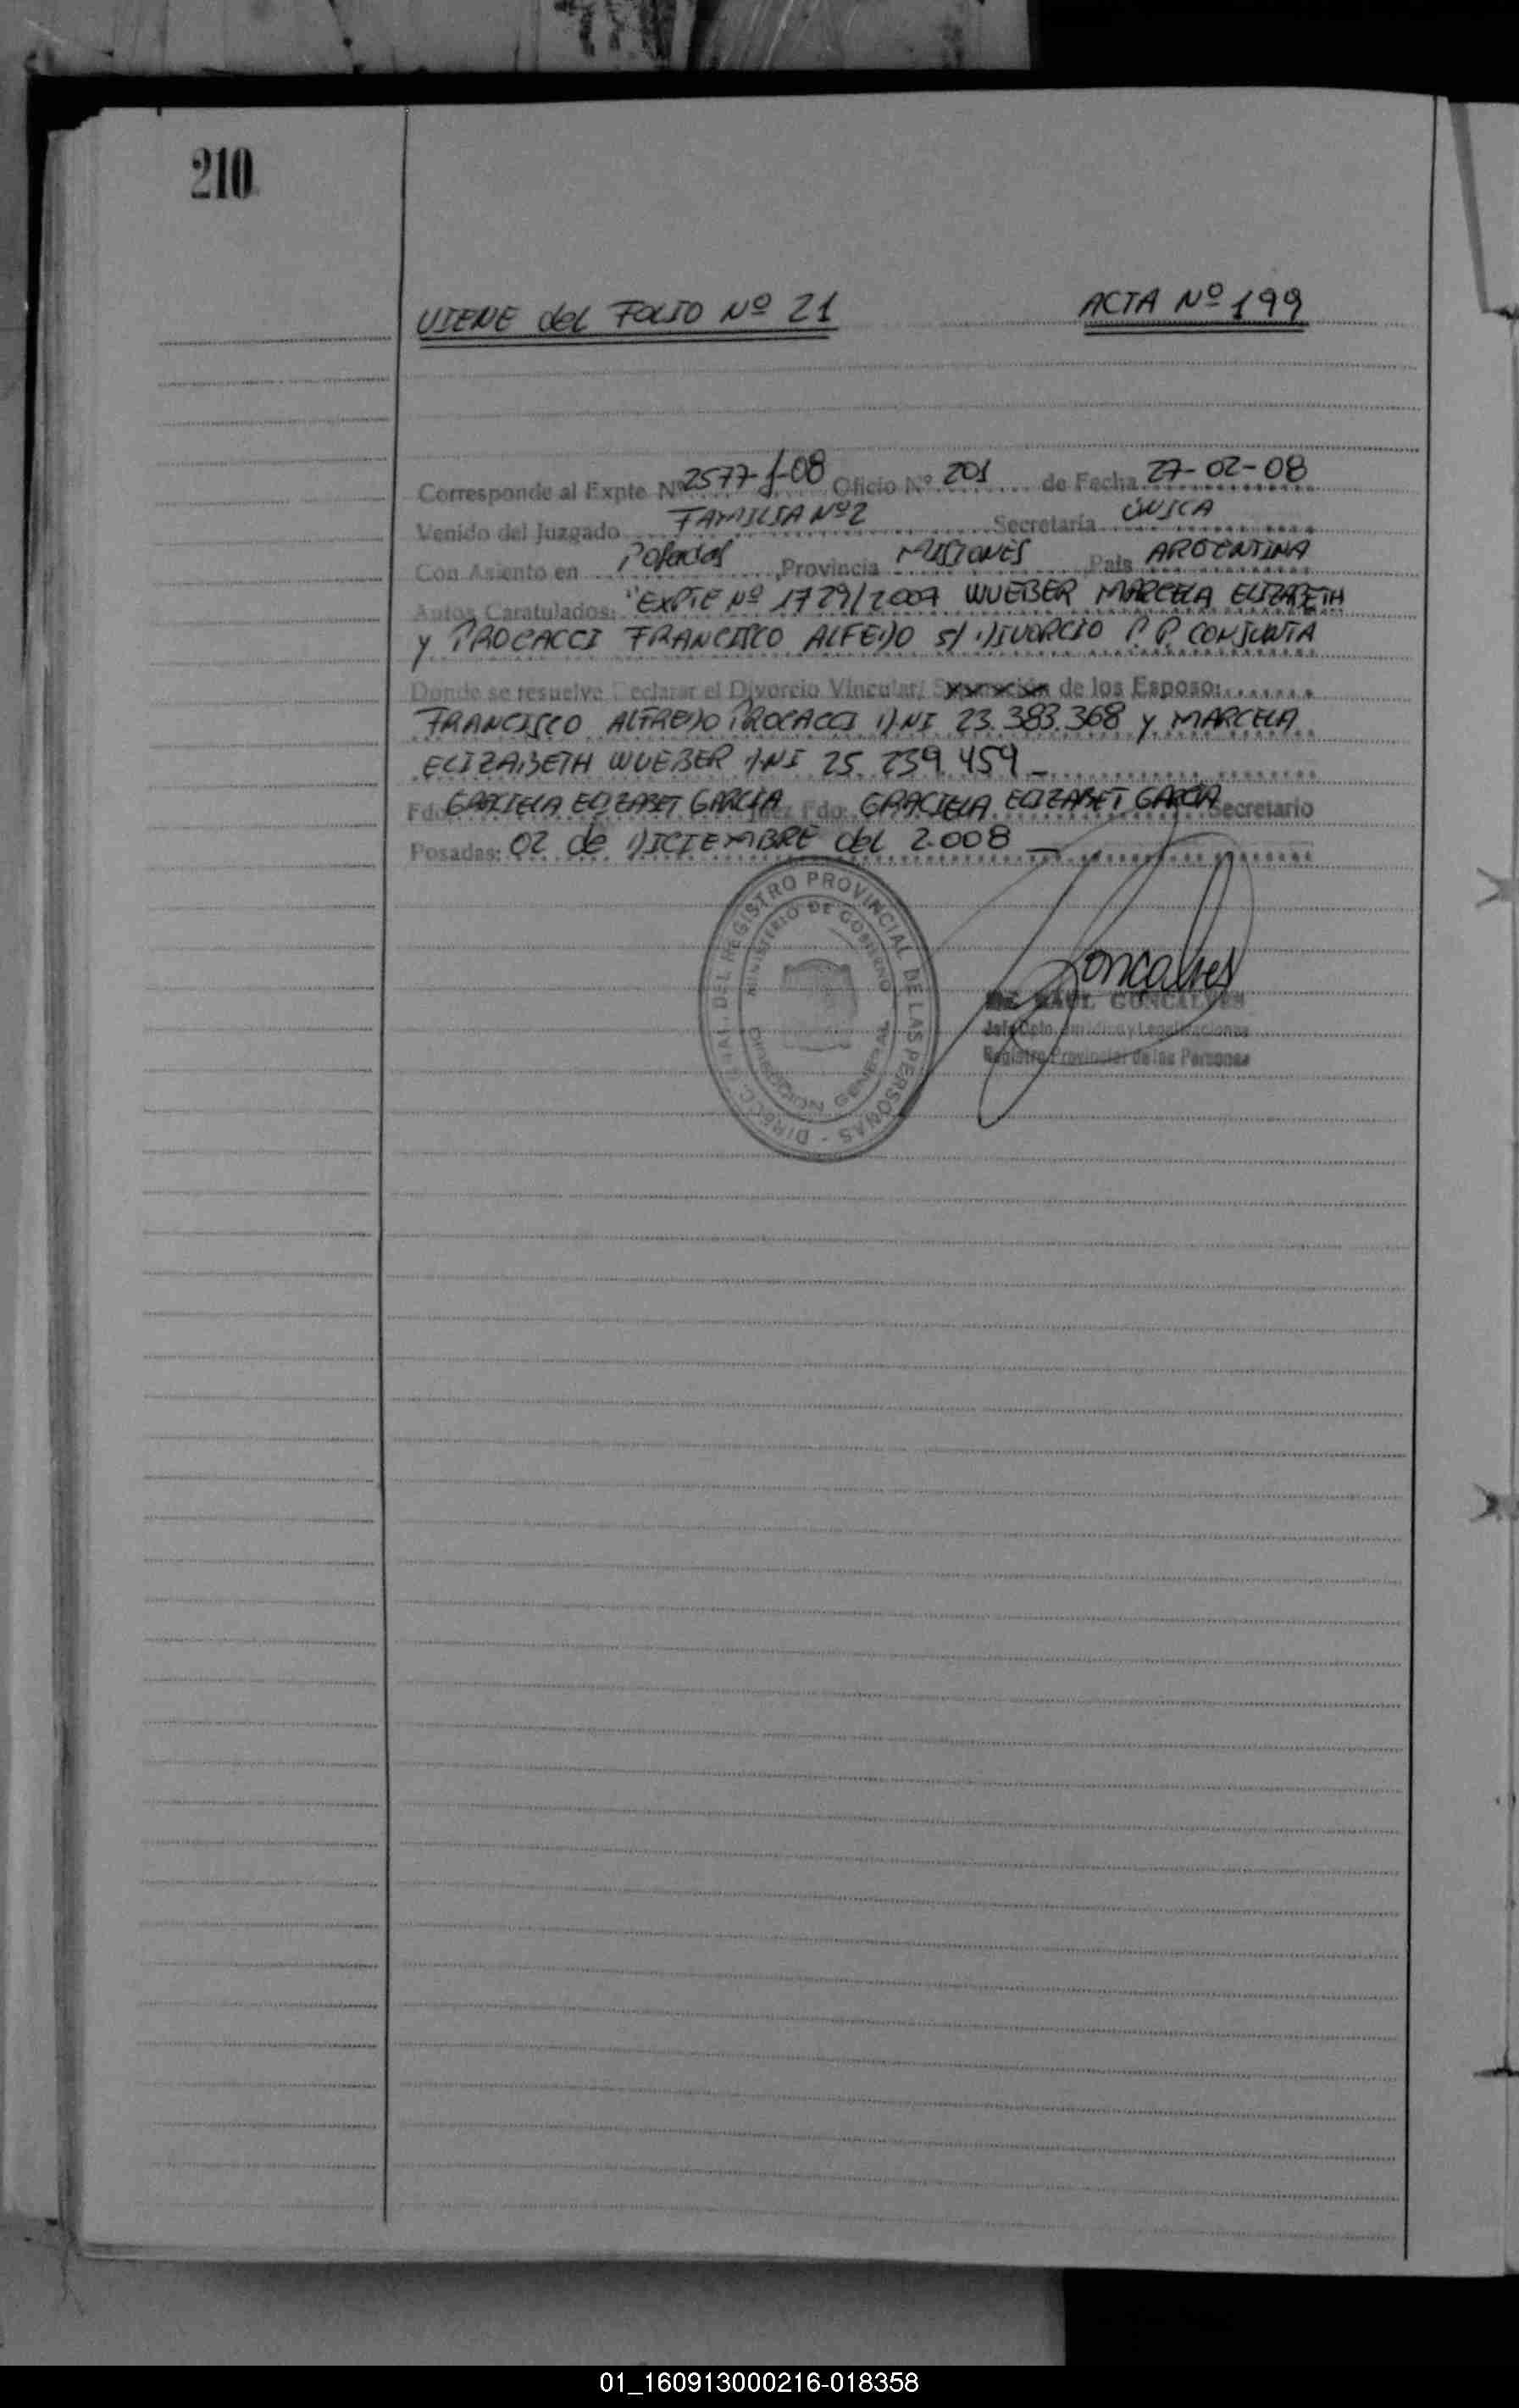 210
VIENE del FOLIO Nº 21
ACTA Nº 199
Corresponde al Expte Nº 2577-f-08 Oficio Nº 201 de Fecha 27-02-08
Venido del Juzgado FAMILIA Nº2 Secretaría ÚNICA
Con Asiento en Posadas, Provincia MISIONES País ARGENTINA
Autos Caratulados: "EXPTE Nº 1729/2007 WUEBER MARCELA ELIZABETH
y PROCACCI FRANCISCO ALFEDO S/ DIVORCIO P.P. CONJUNTA
Donde se resuelve Declarar el Divorcio Vincular/ Separación de los Esposo:
FRANCISCO ALFREDO PROCACCI DNI 23.383.368 y MARCELA
ELIZABETH WUEBER DNI 25.239.459 -
Fdo: GRACIELA ELIZABET GARCIA Juez Fdo: GRACIELA ELIZABET GARCIA Secretario
Posadas: 02 de DICIEMBRE del 2.008 -
DIRECC. GRAL. DEL REGISTRO PROVINCIAL DE LAS PERSONAS -
MINISTERIO DE GOBIERNO
DIRECCION GENERAL
Goncalves
RAUL GONCALVES
Jefe Dpto. Jurídico y Legalizaciones
Registro Provincial de las Personas
01_160913000216-018358